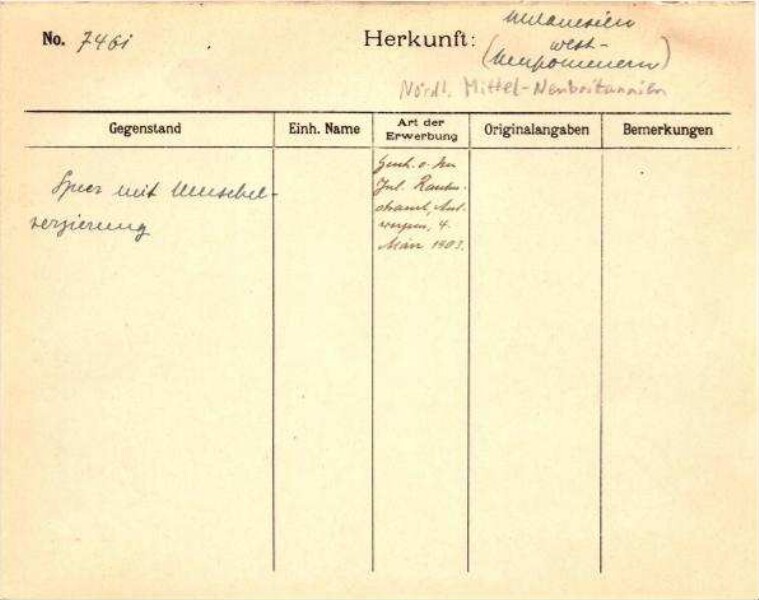 No. 7461
Herkunft: Melanesien
(West-
Neupommern)
Nördl. Mittel-Neubritannien
Gegenstand
Einh. Name
Art der
Erwerbung
Originalangaben
Bemerkungen
Speer mit Muschel-
verzierung
Gesch. v. Hrn
Jul. Rauten-
strauch, Ant-
werpen, 4.
März 1903.